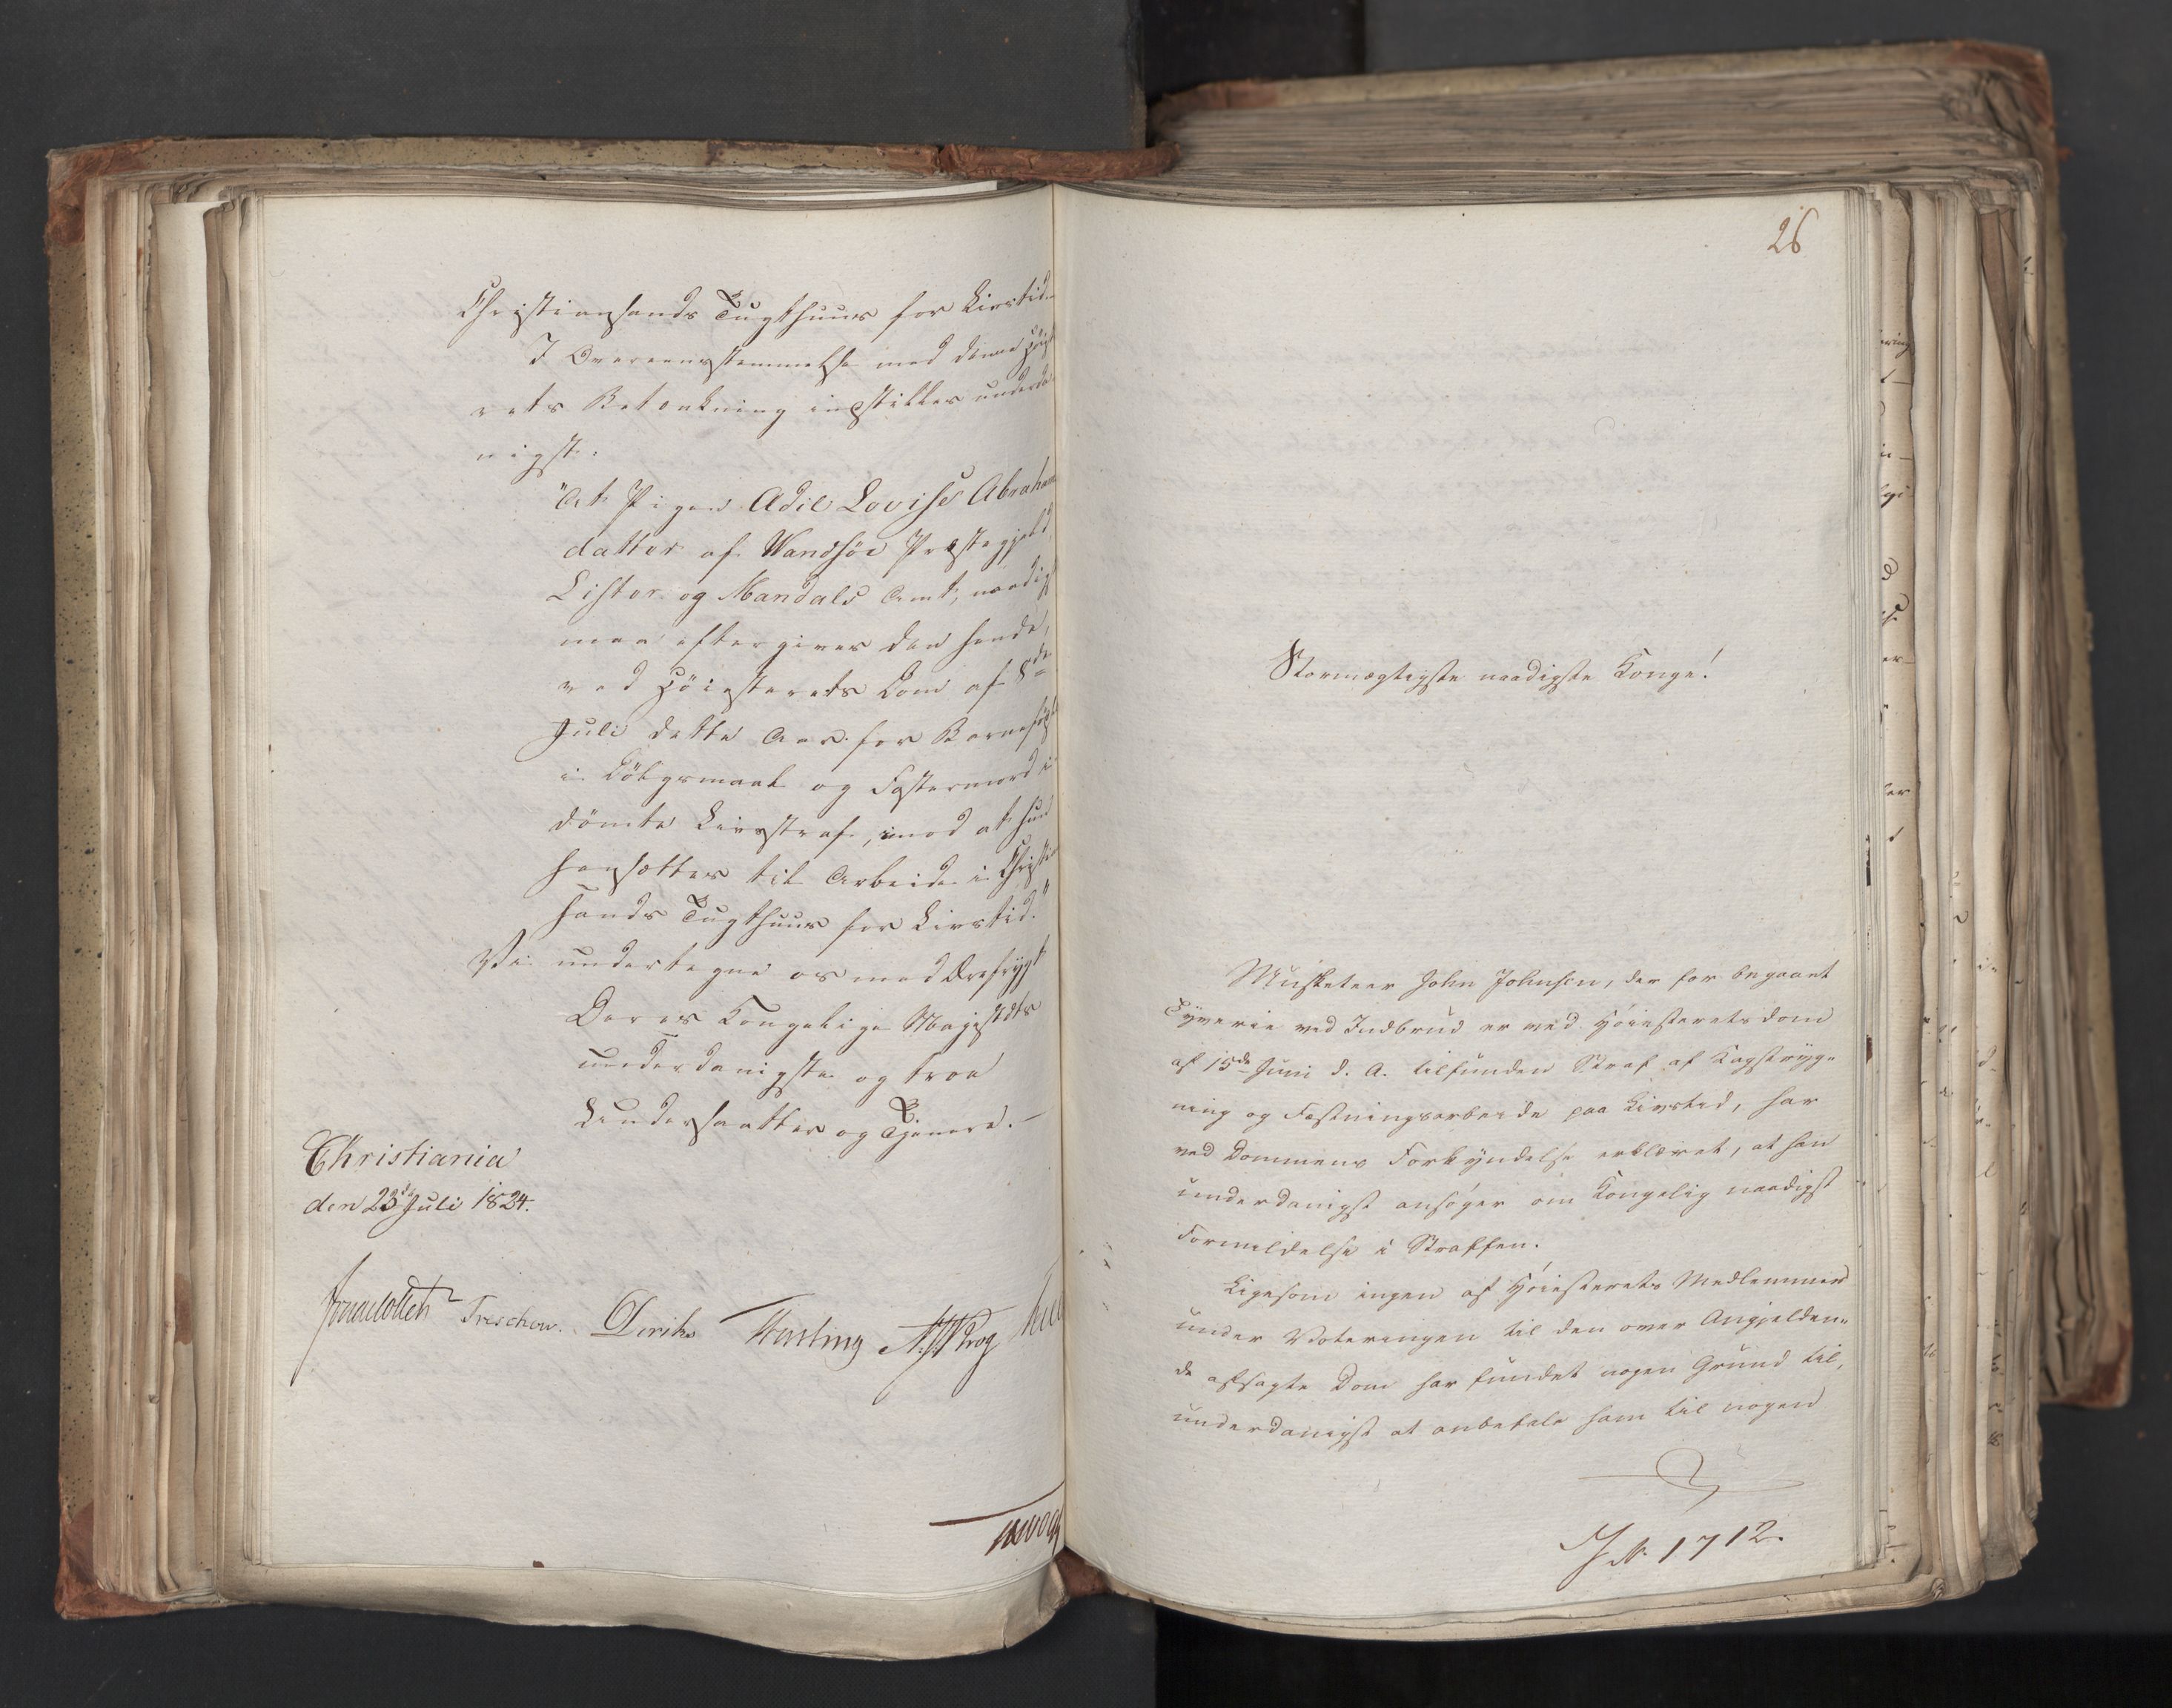 Christiansands Tugthuus for Livstid.
I Overeensstemmelse med denne Høieste
rets Betænkning indstilles underda
nigst:
"At Pigen Adil Lovise Abrahams
datter af Wandsöe Præstegjeld,
Lister og Mandals Amt, naadigst
maa eftergives den hende,
ved Höiesterets Dom af 8de
Juli dette Aar for Barnefødsel
i Dölgsmaal og Fostermord i
dömte Livsstraf, imod at hun
hensættes til Arbeide i Christian
sands Tugthuus for Livstid."
Vi undertegne os med Ærefrygt
Deres Kongelige Majestæts
underdanigste og troe
Undersaatter og Tjenere. —
Christiania
den 23de Juli 1824.
Jonas Collett Treschow. Diriks Fasting Krog
26
Stormægtigste naadigste Konge!
Musketeer John Johnsen, der for begaaet
Tyverie ved Indbrud er ved Höiesteretsdom
af 15de Juni d. A. tilfunden Straf af Kagstryg-
ning og Fæstningsarbeide paa Livstid, har
ved Dommens Forkyndelse erklæret, at han
underdanigst ansøger om Kongelig naadigst
Formildelse i Straffen.
Ligesom ingen af Höiesterets Medlemmer
under Voteringen til den over Angjelden-
de afsagte Dom har fundet nogen Grund til,
underdanigst at anbefale ham til nogen
JN. 1712.